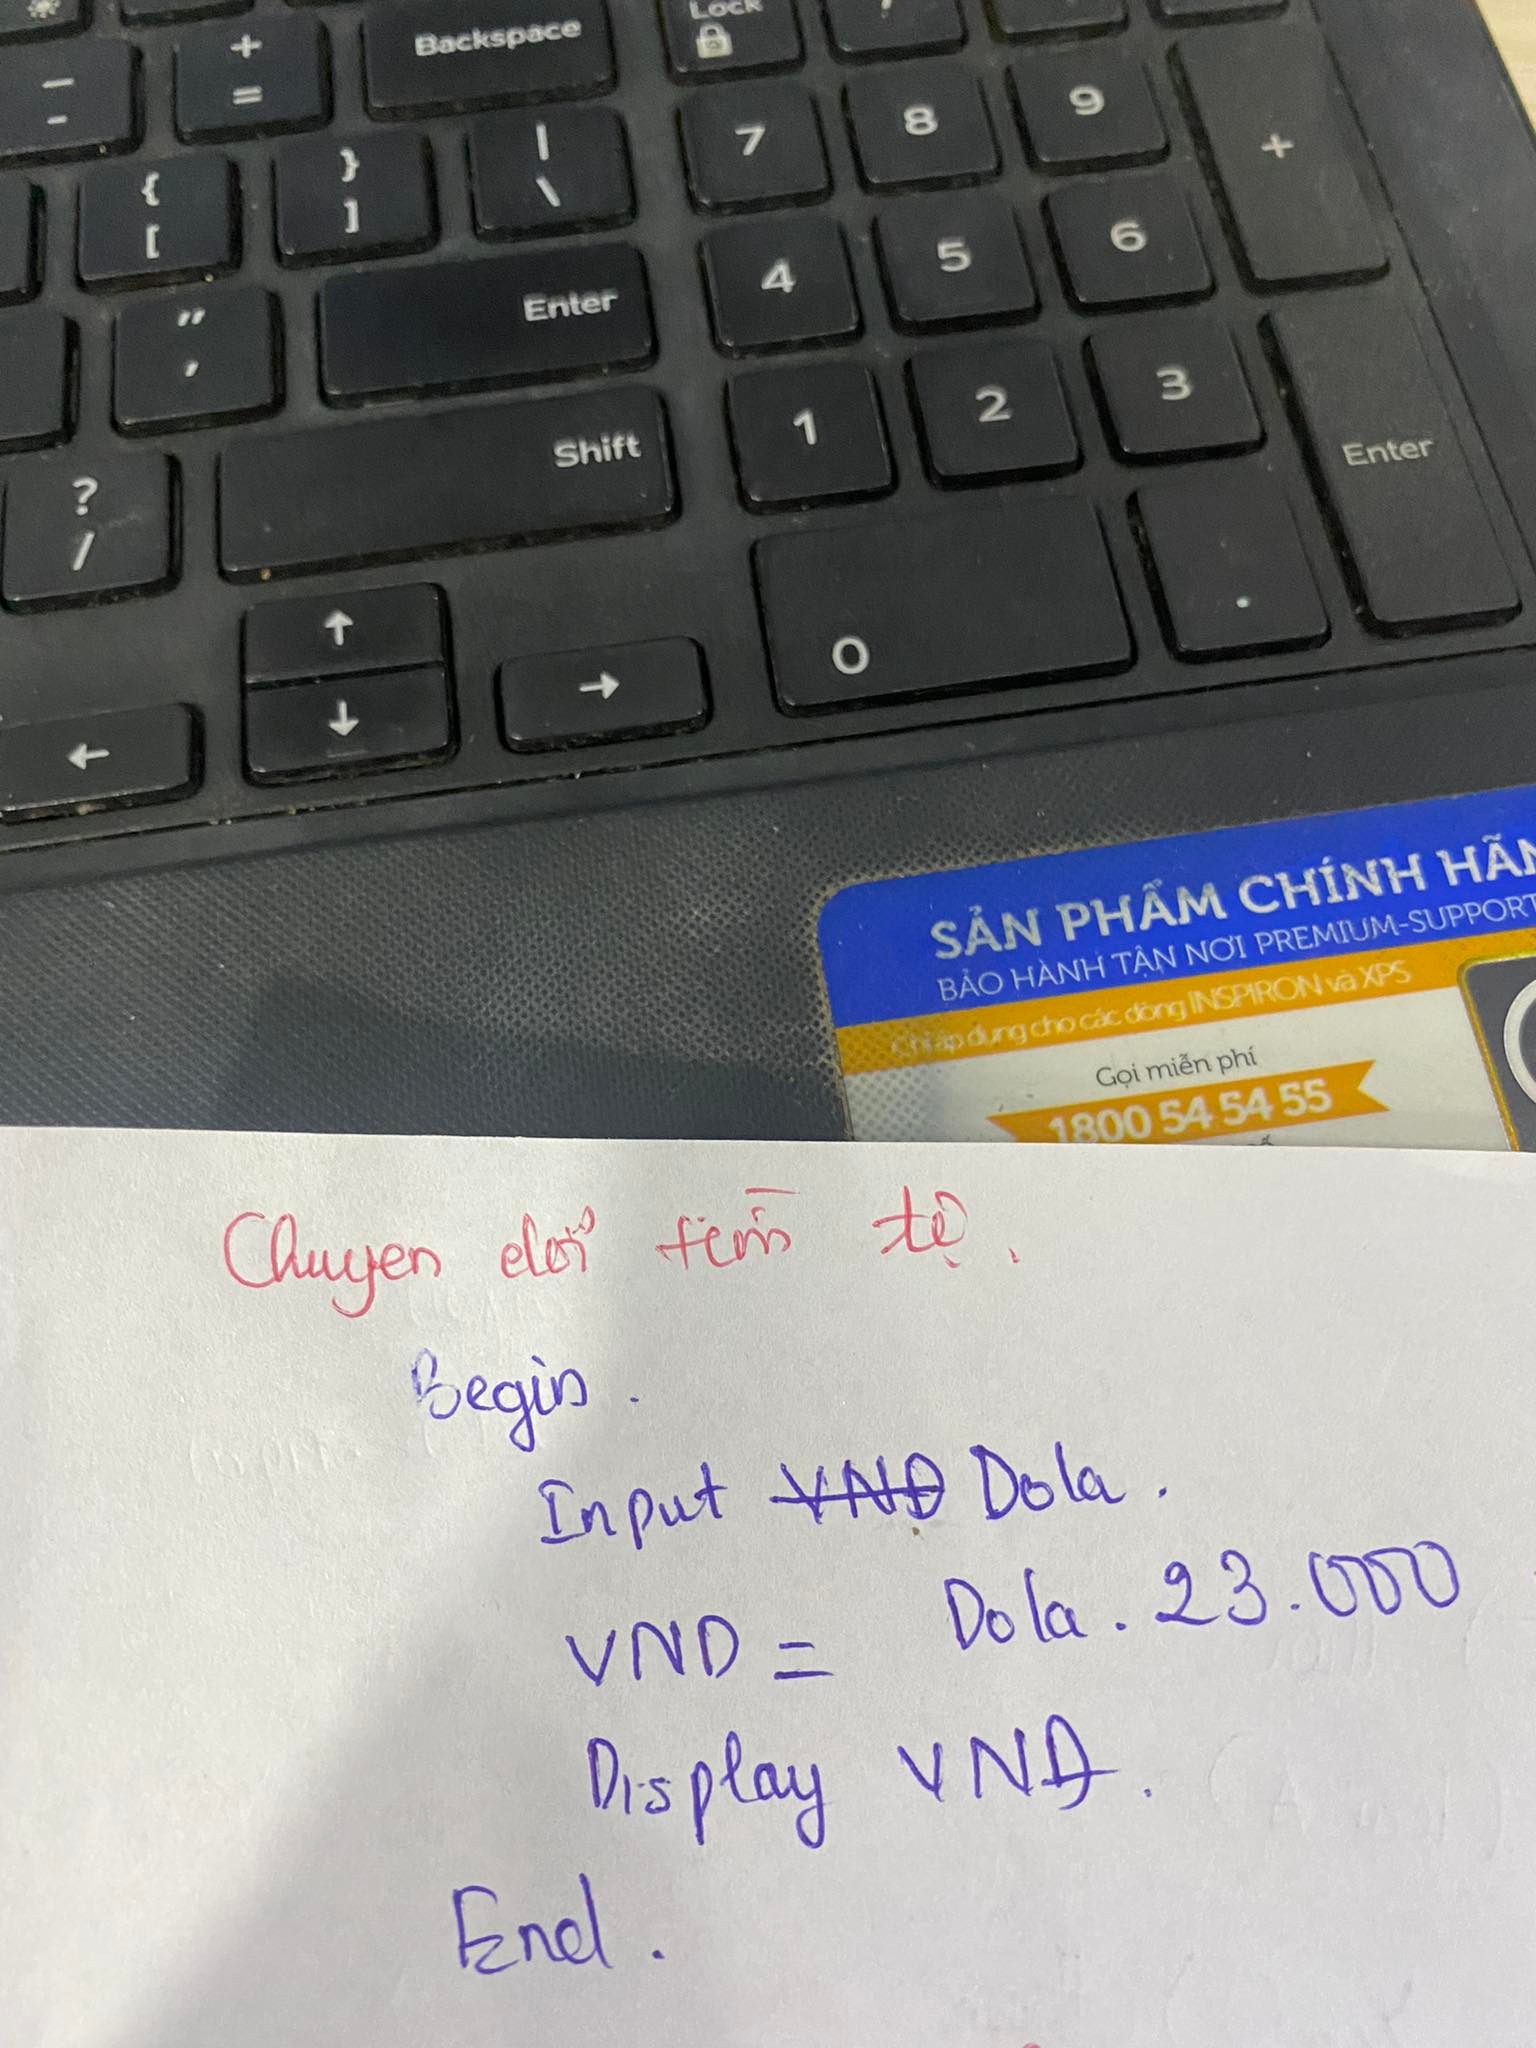 Lock
+
=
Backspace
7
8
9
+
-
{
[
}
]
|
\
4
5
6
"
'
Enter
1
2
3
Enter
?
/
Shift
↑
0
.
←
↓
→
SẢN PHẨM CHÍNH HÃN
BẢO HÀNH TẬN NƠI PREMIUM-SUPPORT
Chỉ áp dụng cho các dòng INSPIRON và XPS
Gọi miễn phí
1800 54 54 55
Chuyen đổi tiền tệ.
Begin.
Input VNĐ Dola.
VND = Dola. 23.000
Display VNĐ.
End.